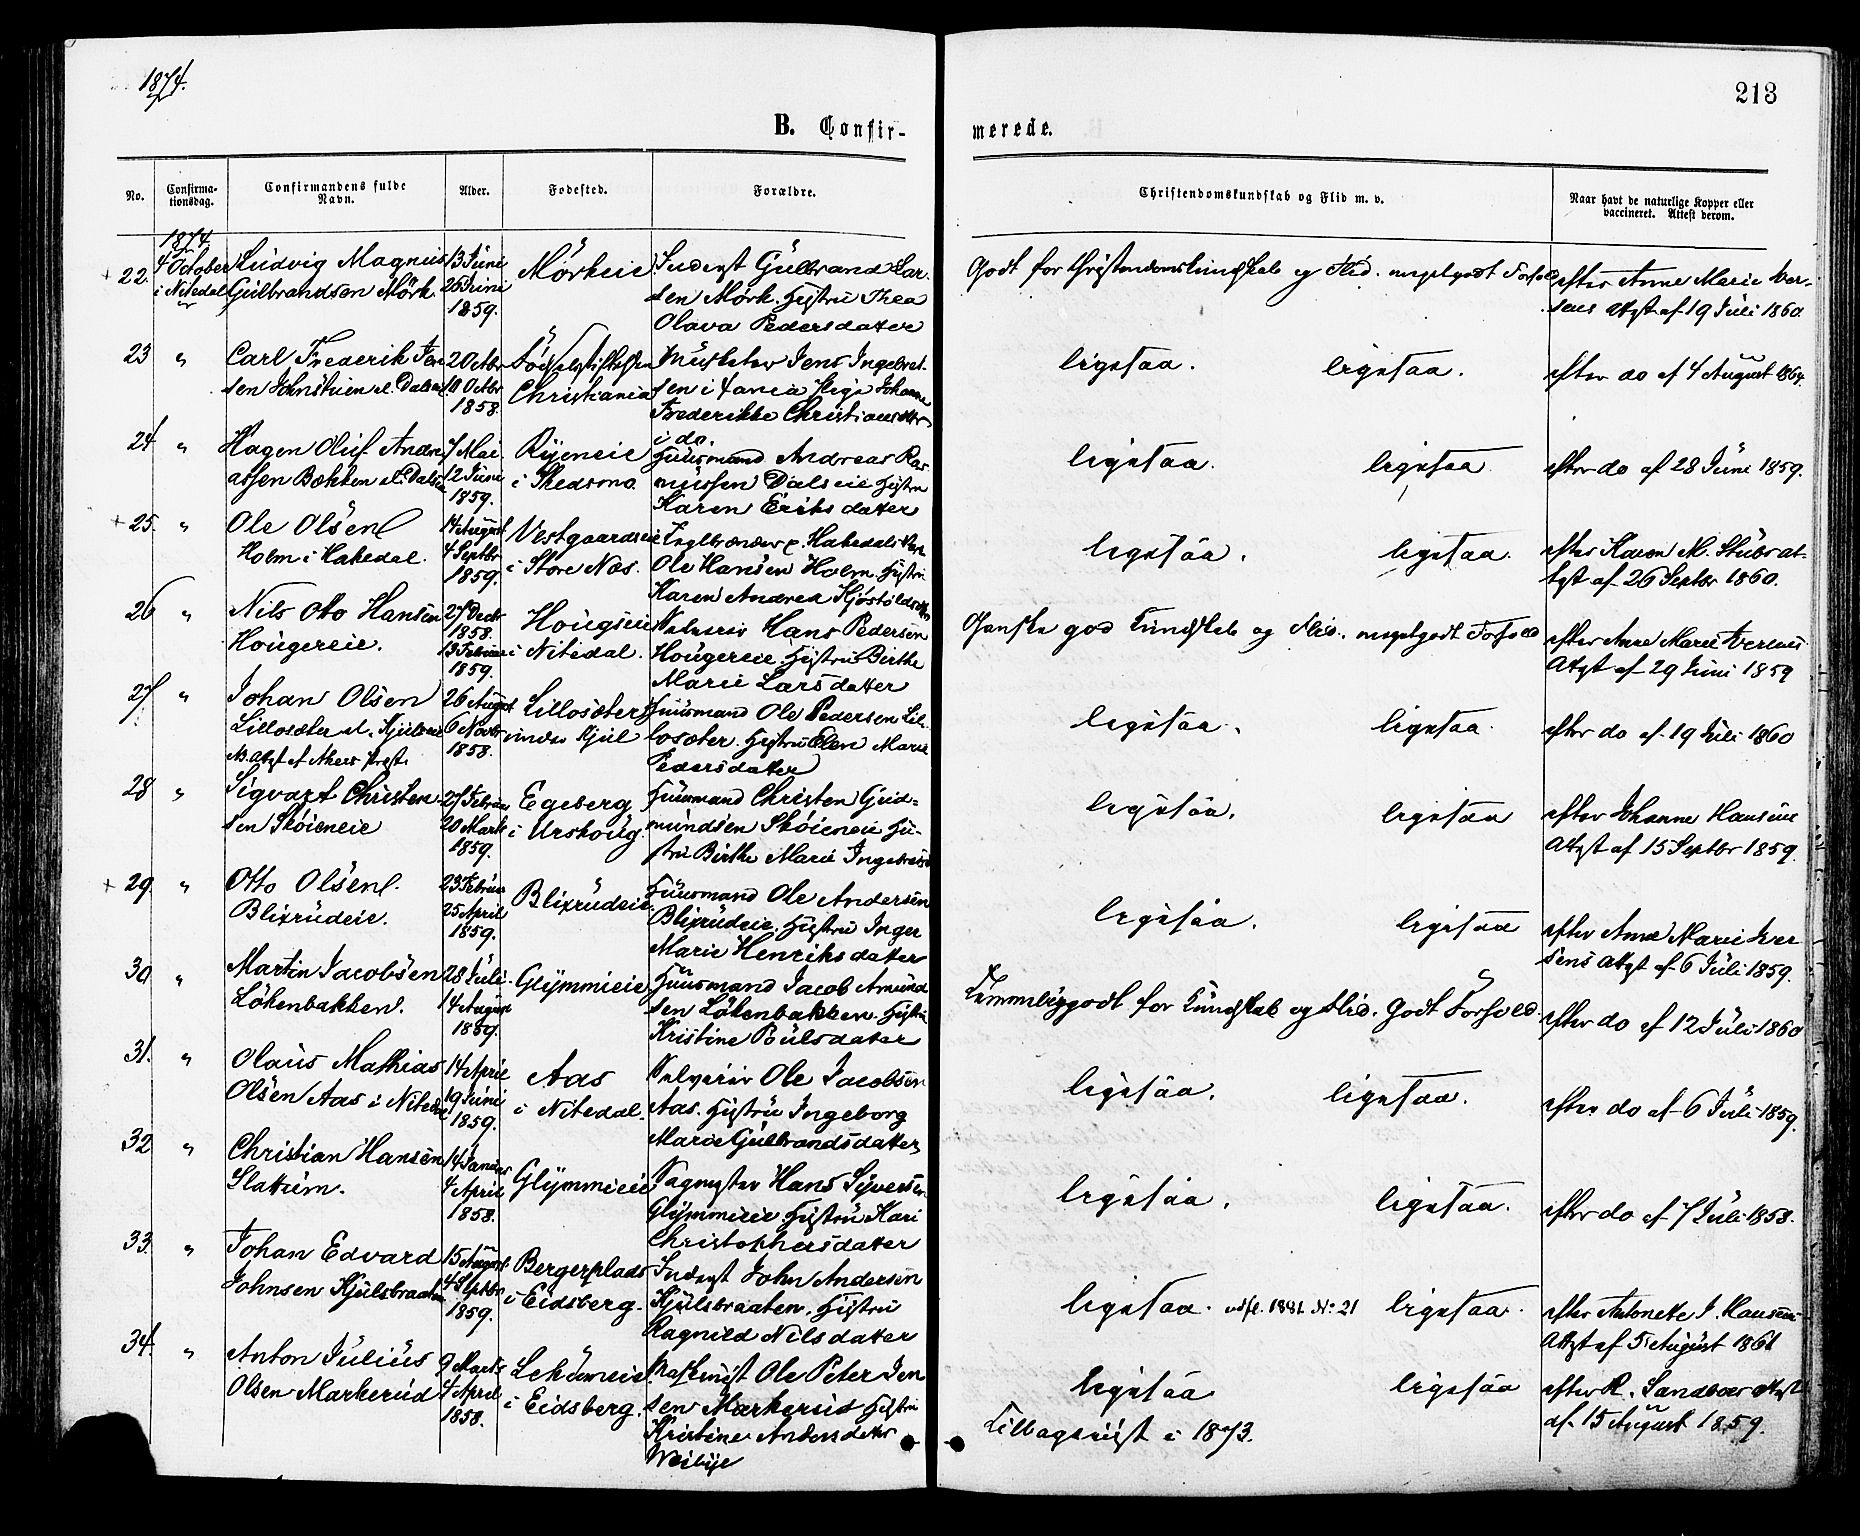 1874.
213
B. Confir-
merede.
No.
Confirma-
tionsdag.
Confirmandens fulde
Navn.
Alder.
Fodested.
Forældre.
Christendomskundskab og Flid m. v.
Naar havt de naturlige Kopper eller
vaccineret. Attest derom.
1874.
+ 22. 4 October Ludvig Magnus 13 Juni Mörkeie Gulbrand Lar-
i Nitedal Gulbrandsen Mörk. 26 Juni sen Mörk. Hustru Thea
1859. Olava Pedersdatter
Godt for Christendomskundskab og Flid. meget godt Forhold efter Anne Marie Iver-
sens Attest af 19 Juli 1860.
23 " Carl Frederik Jen 2 Octbr Födselsstiftelsen Jens Ingebret-
sen 10 Octbr Christiania sen i Johanne
1858. Frederikke
i do.
ligesaa. ligesaa. efter do af 4 August 1864.
24 " Hagen Oluf Andre 7 Mai Ryeneie Huusmand Andreas Ras
assen Bækken 12 Juni i Skedsmo. mussen Dalseie Hustru
1859. Karen Eriksdatter
ligesaa. ligesaa efter do af 28 Juni 1859.
+ 25. " Ole Olsen 14 August Vestgaardseie Hakedals
Holm i Hakedal. 4 Septbr i Store Næs. Ole Hansen Holm Hustru
1859. Karen Andrea
ligesaa. ligesaa. efter Karen M. Stubs at-
test af 26 Septbr 1860.
26 " Nils Otto Hansen 27 Decbr Hougseie Selveier Hans Pedersen
Hougereie. 1858. i Nitedal. Hougereie. Hustru Birthe
13 Februar Marie Larsdatter
1859.
Ganske god Kundskab og Flid. meget godt Forhold efter Anne Marie Iversens
Attest af 29 Juni 1859
27 " Johan Olsen 26 August Lillosæter Huusmand Ole Pedersen Lil-
Lillosæter 6 Novbr under Kjul losæter. Hustru Elen Marie
1858. Pedersdatter
ligesaa. ligesaa. efter do af 19 Juli 1860
28 " Sigvart Christen- 27 Februar Egeberg Huusmand Christen Gud-
sen Sköieneie 20 Marts i Urskoug. mundsen Sköieneie Hu-
1859. stru Birthe Marie
ligesaa. ligesaa efter Johanne Hansens
Attest af 15 Septbr 1859.
+ 29. " Otto Olsen. 23 Februar Blixrudeie Huusmand Ole Andersen
Blixrudeie. 25 April Blixrudeie. Hustru Inger
1859. Marie Henriksdatter
ligesaa. ligesaa efter Anne Marie Iver
sens attest af 6 Juli 1859.
30. " Martin Jacobsen 28 Juli Glymmieie Huusmand Jacob Amund
Lökenbakken. 14 August sen Lökenbakken. Hustru
1859. Kristine Paulsdatter
Temmelig godt for Kundskab og Flid. Godt Forhold. efter do af 12 Juli 1860
31. " Olaus Mathias 14 April Aas Selveier Ole Jacobsen
Olsen Aas i Nitedal 19 Juni i Nitedal. Aas. Hustru Ingeborg
1859. Marie Gulbrandsdatter
ligesaa. ligesaa. efter do af 6 Juli 1859.
32 " Christian Hansen 14 Januar Glymmieie Sagmester Hans Syversen
Slattum. 4 April Glymmieie. Hustru Kari
1858. Christophersdatter
ligesaa. ligesaa. efter do af 7 Juli 1858.
33. " Johan Edvard 15 August Bergerplads Inderst John Andersen
Johnsen Kjulsbraaten 4 Septbr i Eidsberg. Kjulsbraaten. Hustru
1859. Ragnild Nilsdatter
ligesaa. udfl. 1881 No 21 ligesaa. efter Antonette J. Hansens
Attest af 5 August 1861
34. " Anton Julius 9 Marts i Eidsberg. Ole Peter Jen
Olsen Markerud 4 April sen Markerud Hustru
1858. Kristine Andersdatter
ligesaa ligesaa efter R. Sandboes Attest
af 15 August 1859.
Tillagsviist i 1873.